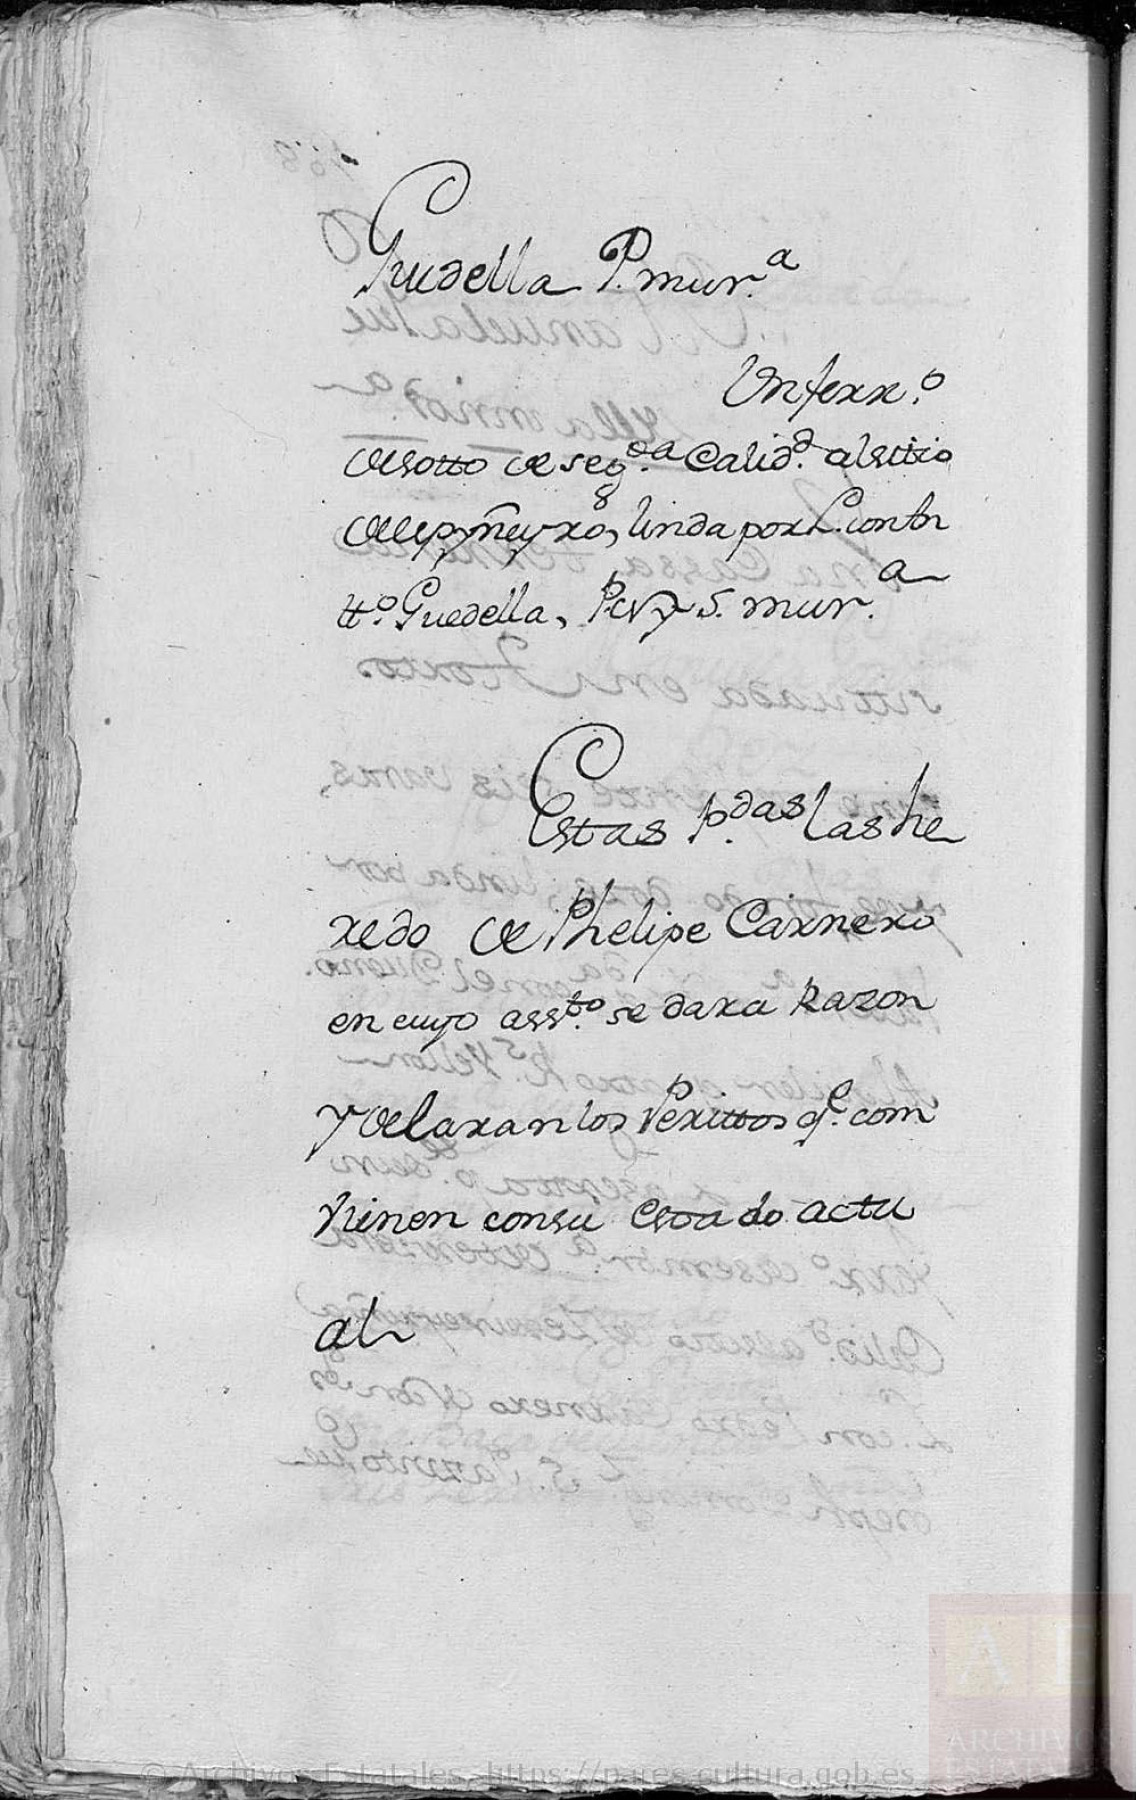 Guedella P. mur.ª
Un ferr.º
de soto de seg.da Calid.d al sitio
de lepyñeyros, linda por L. con Bn
tto Guedella, P. V y S. mur.ª
Estas p.das las he
redo de Phelipe Carnero
en cuyo assto se dara Razon
y delaran los Perittos q.e com
binen con su estado actu
al
© Archivos Estatales, https://pares.cultura.gob.es
AE
ARCHIVOS
ESTATALES